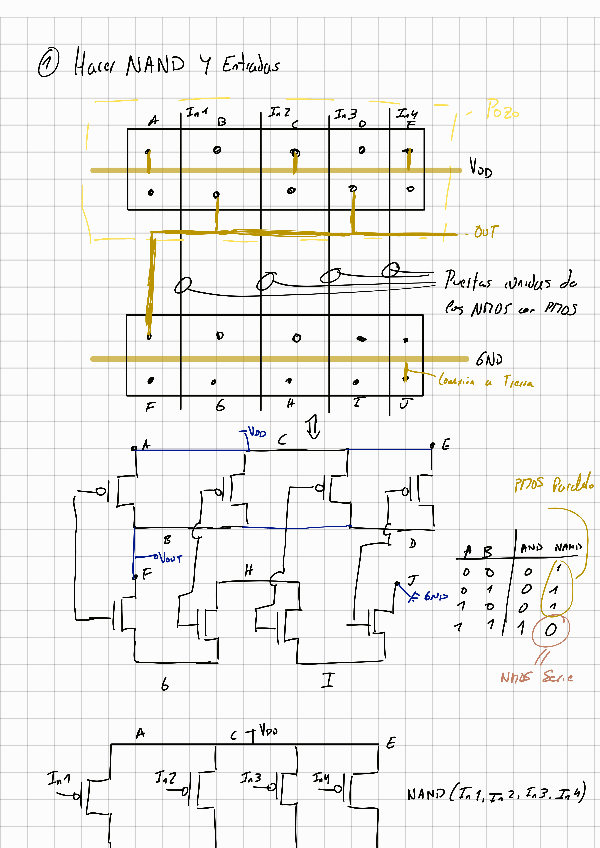 ① Hacer NAND 4 Entradas
In1 In2 In3 In4
A B C D E
- Pozo
VDD
OUT
Puertas unidas de
los NMOS con PMOS
GND
Conexión a Tierra
F G H I J
A VDD C E
PMOS Paralelo
B D
VOUT
F H J
GND
G I
A B AND NAND
0 0 0 1
0 1 0 1
1 0 0 1
1 1 1 0
NMOS Serie
A C VDD E
In1 In2 In3 In4
NAND (In1, In2, In3, In4)